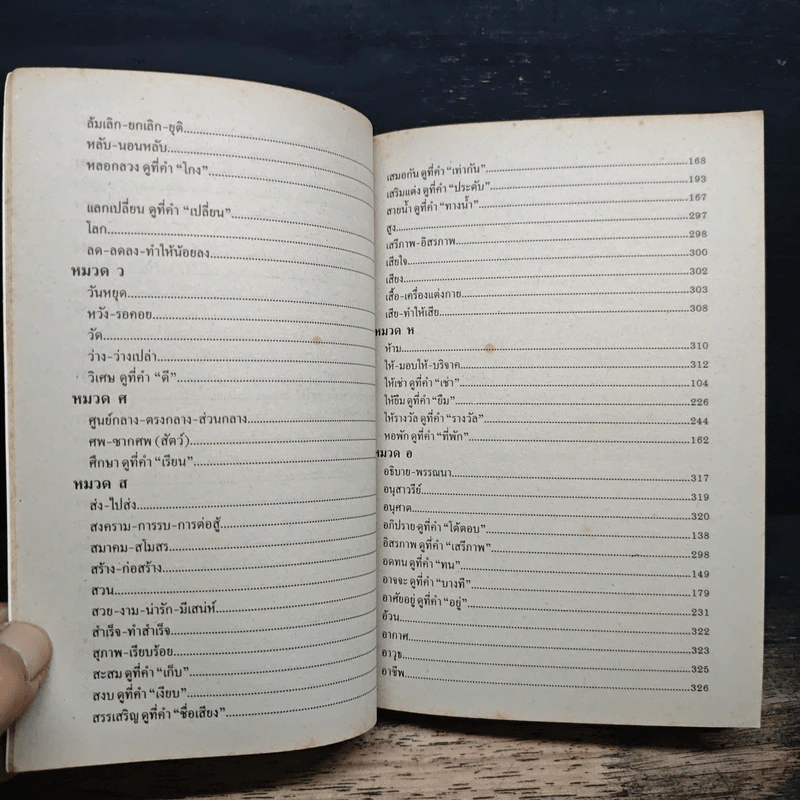 ล้มเลิก-ยกเลิก-ยุติ
หลับ-นอนหลับ
หลอกลวง ดูที่คำ “โกง”
แลกเปลี่ยน ดูที่คำ “เปลี่ยน”
โลก
ลด-ลดลง-ทำให้น้อยลง
หมวด ว
วันหยุด
หวัง-รอคอย
วัด
ว่าง-ว่างเปล่า
วิเศษ ดูที่คำ “ดี”
หมวด ศ
ศูนย์กลาง-ตรงกลาง-ส่วนกลาง
ศพ-ซากศพ (สัตว์)
ศึกษา ดูที่คำ “เรียน”
หมวด ส
ส่ง-ไปส่ง
สงคราม-การรบ-การต่อสู้
สมาคม-สโมสร
สร้าง-ก่อสร้าง
สวน
สวย-งาม-น่ารัก-มีเสน่ห์
สำเร็จ-ทำสำเร็จ
สุภาพ-เรียบร้อย
สะสม ดูที่คำ “เก็บ”
สงบ ดูที่คำ “เงียบ”
สรรเสริญ ดูที่คำ “ชื่อเสียง”
เสมอกัน ดูที่คำ “เท่ากัน” 168
เสริมแต่ง ดูที่คำ “ประดับ” 193
สายน้ำ ดูที่คำ “ทางน้ำ” 167
สูง 297
เสรีภาพ-อิสรภาพ 298
เสียใจ 300
เสียง 302
เสื้อ-เครื่องแต่งกาย 303
เสีย-ทำให้เสีย 308
หมวด ห
ห้าม 310
ให้-มอบให้-บริจาค 312
ให้เช่า ดูที่คำ “เช่า” 104
ให้ยืม ดูที่คำ “ยืม” 226
ให้รางวัล ดูที่คำ “รางวัล” 244
หอพัก ดูที่คำ “ที่พัก” 162
หมวด อ
อธิบาย-พรรณนา 317
อนุสาวรีย์ 319
อนุศาต 320
อภิปราย ดูที่คำ “โต้ตอบ” 138
อิสรภาพ ดูที่คำ “เสรีภาพ” 298
อดทน ดูที่คำ “ทน” 149
อาจจะ ดูที่คำ “บางที” 179
อาศัยอยู่ ดูที่คำ “อยู่” 231
อ้วน 322
อากาศ 323
อาวุธ 325
อาชีพ 326